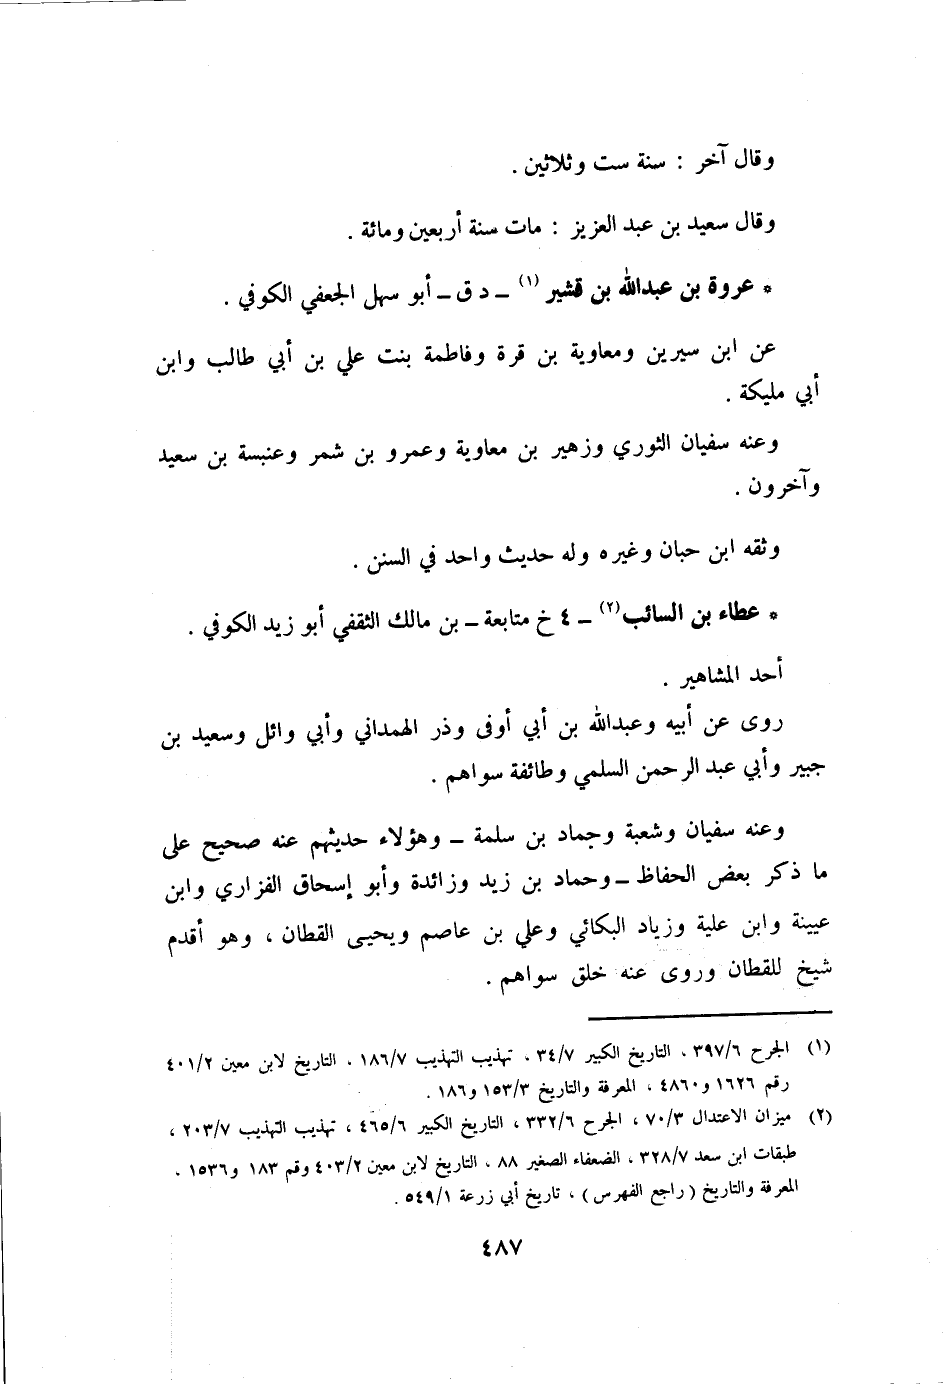 وقال آخر : سنة ست وثلاثين .
وقال سعيد بن عبد العزيز : مات سنة أربعين ومائة .
* عروة بن عبدالله بن قشير (١) ــ د ق ــ أبو سهل الجعفي الكوفي .
عن ابن سيرين ومعاوية بن قرة وفاطمة بنت علي بن أبي طالب وابن
أبي مليكة .
وعنه سفيان الثوري وزهير بن معاوية وعمرو بن شمر وعنبسة بن سعيد
وآخرون .
وثقه ابن حبان وغيره وله حديث واحد في السنن .
* عطاء بن السائب (٢) ــ ٤ خ متابعة ــ بن مالك الثقفي أبو زيد الكوفي .
أحد المشاهير .
روى عن أبيه وعبدالله بن أبي أوفى وذر الهمداني وأبي وائل وسعيد بن
جبير وأبي عبد الرحمن السلمي وطائفة سواهم .
وعنه سفيان وشعبة وحماد بن سلمة ــ وهؤلاء حديثهم عنه صحيح على
ما ذكر بعض الحفاظ ــ وحماد بن زيد وزائدة وأبو إسحاق الفزاري وابن
عيينة وابن علية وزياد البكائي وعلي بن عاصم ويحيى القطان ، وهو أقدم
شيخ للقطان وروى عنه خلق سواهم .
(١) الجرح ٣٩٧/٦ ، التاريخ الكبير ٣٤/٧ ، تهذيب التهذيب ١٨٦/٧ ، التاريخ لابن معين ٤٠١/٢
رقم ١٦٢٦ و٤٨٦٠ ، المعرفة والتاريخ ١٥٣/٣ و١٨٦ .
(٢) ميزان الاعتدال ٧٠/٣ ، الجرح ٣٣٢/٦ ، التاريخ الكبير ٤٦٥/٦ ، تهذيب التهذيب ٢٠٣/٧ ،
طبقات ابن سعد ٣٢٨/٧ ، الضعفاء الصغير ٨٨ ، التاريخ لابن معين ٤٠٣/٢ وقم ١٨٣ و١٥٣٦ .
المعرفة والتاريخ ( راجع الفهرس ) ، تاريخ أبي زرعة ٥٤٩/١ .
٤٨٧